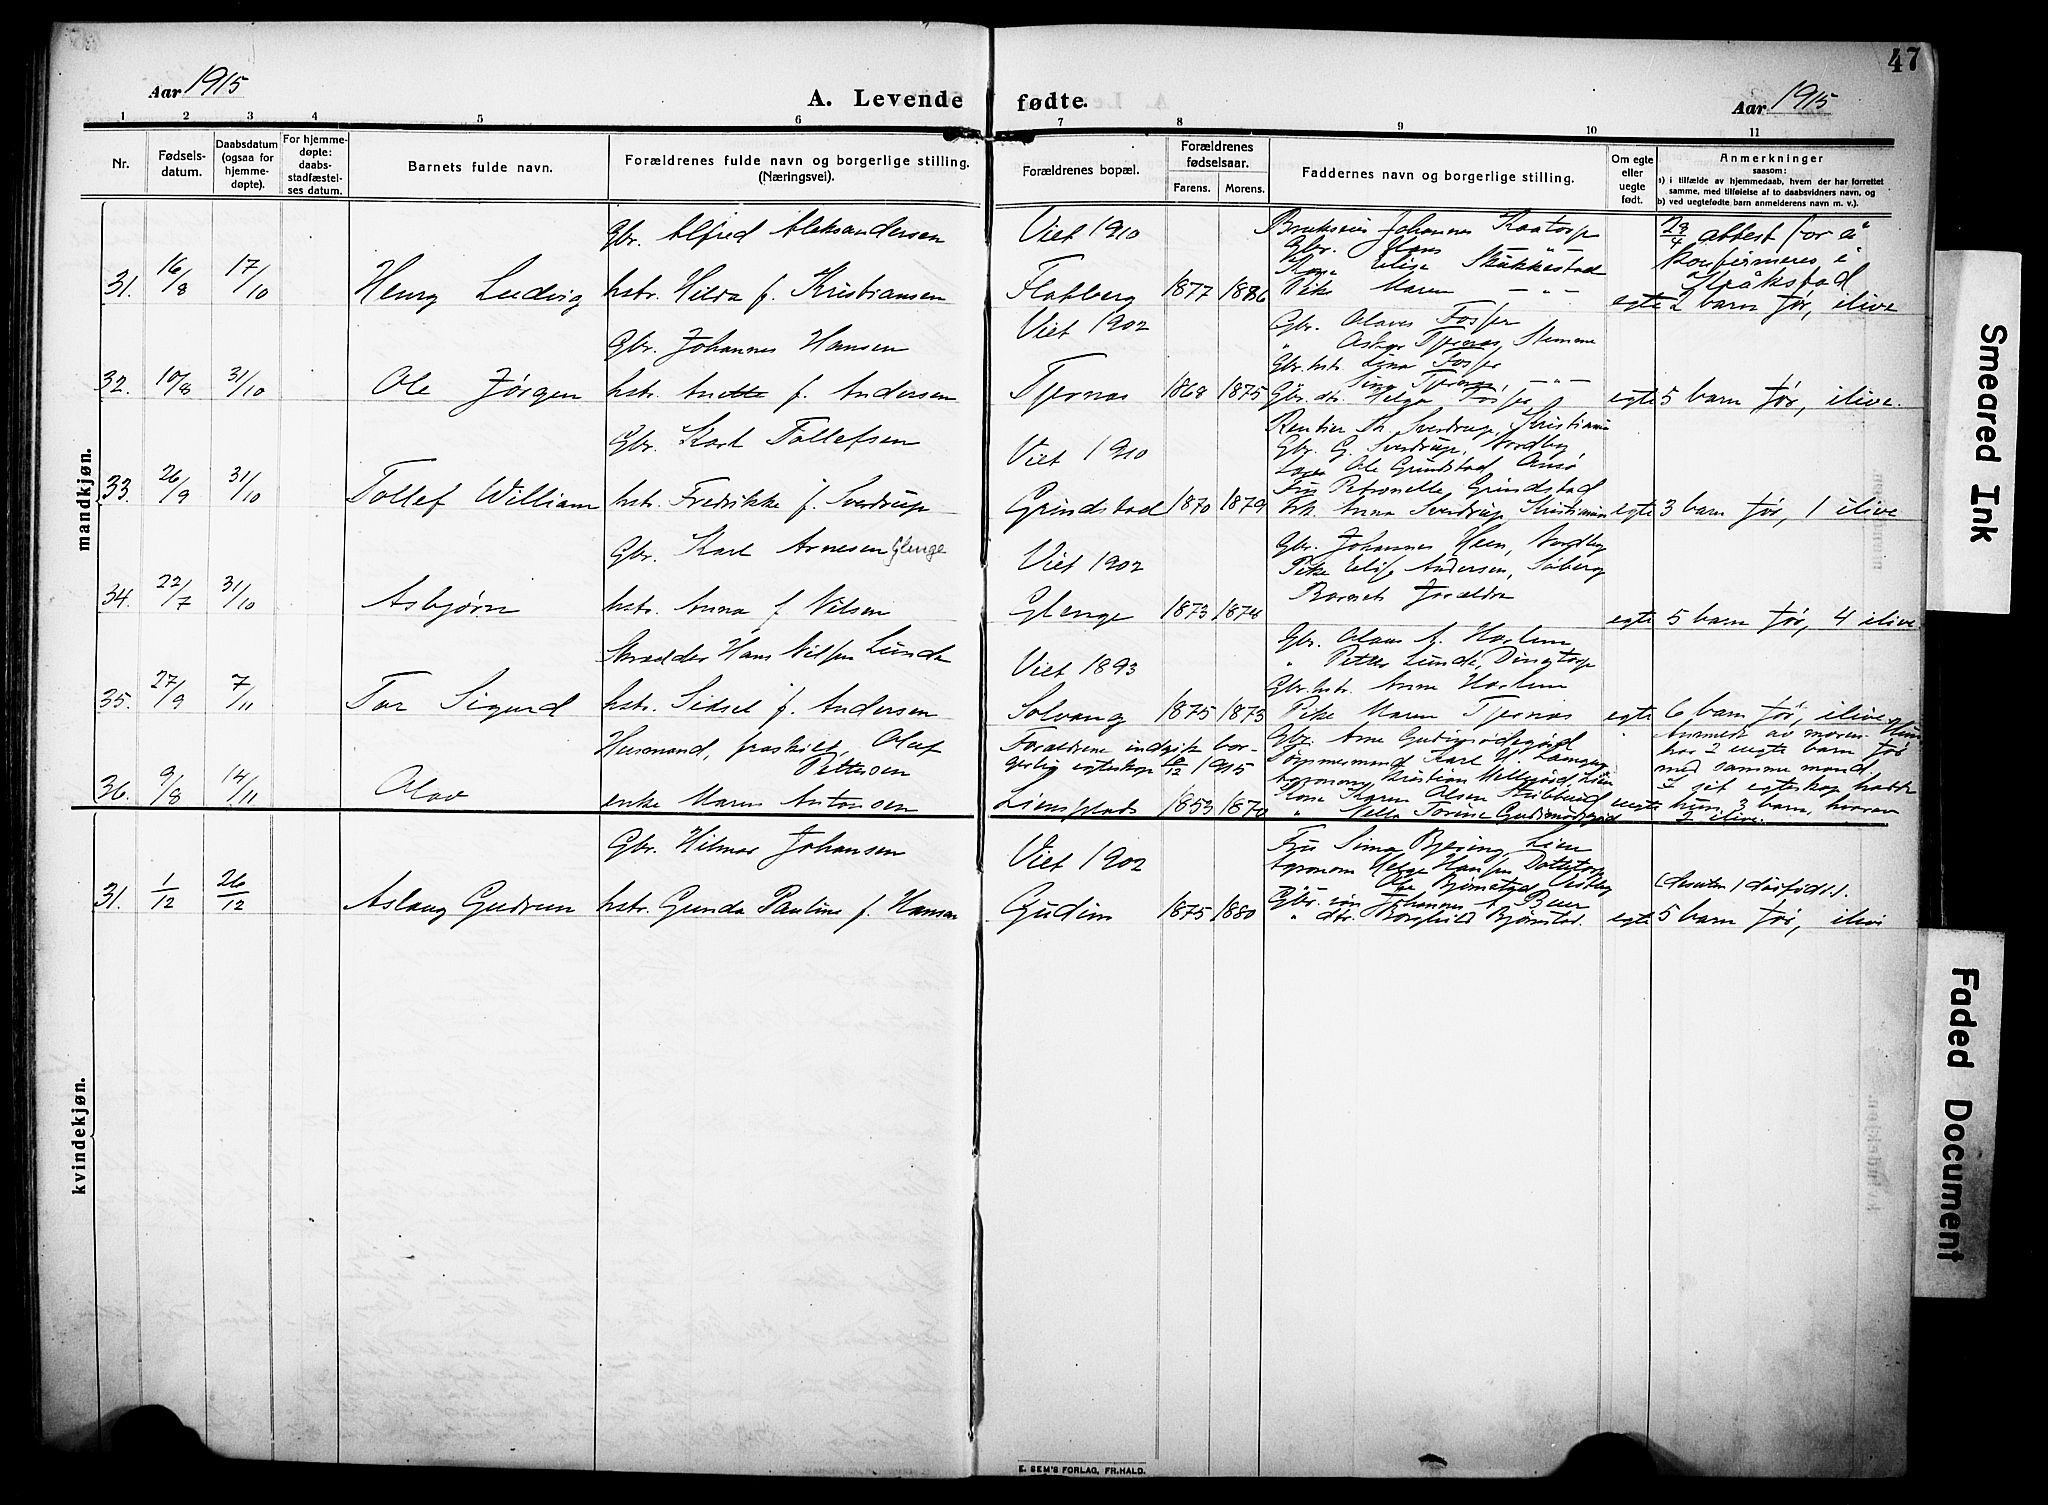 47
Aar 1915
A. Levende fødte.
Aar 1915
1 2 3 4 5 6 7 8 9 10 11
Nr.
Fødsels-
datum.
Daabsdatum
(ogsaa for
hjemme-
døpte).
For hjemme-
døpte:
daabs-
stadfæstel-
ses datum.
Barnets fulde navn.
Forældrenes fulde navn og borgerlige stilling.
(Næringsvei).
Forældrenes bopæl.
Forældrenes
fødselsaar.
Farens. Morens.
Faddernes navn og borgerlige stilling.
Om egte
eller
uegte
født.
Anmerkninger
saasom:
a) i tilfælde av hjemmedaab, hvem der har forrettet
samme, med tilføielse af to daabsvidners navn, og
b) ved uegtefødte barn anmelderens navn m. v.).
mandkjøn.
Gbr. Alfred Aleksandersen
Viet 1910
Johannes Kaatorp
Gbr. Hans
Kone Elise Stükkestad
29/4 attest for å
konfirmeres i
Kråkstad
31. 16/8 17/10 Henry Ludvig hstr. Hilda f. Kristiansen Flatberg 1877 1886 Pike Maren — " — egte 2 barn før, ilive
Gbr. Johannes Hansen
Viet 1902
Gbr. Olaves Fosser
" Askar Tjernes, Stemme
Gbr. hstr. Lina Fosser
" Lina Tjernes — " —
32. 10/8 31/10 Ole Jørgen hstr. Anette f. Andersen Tjernæs 1868 1875 Gbr. dtr. Helga Fosser egte 5 barn før, ilive.
Gbr. Karl Tollefsen
Viet 1910
Rentier Th. Sverdrup, Kristiania
Gbr. G. Sverdrup, Nordby
Ole Grindstad
Frü Petronelle Grindstad
33. 26/9 31/10 Tollef William hstr. Fredrikke f. Sverdrup Grindstad 1870 1879 Frk. Anna Sverdrup Kristiania egte 3 barn før, 1 ilive
Gbr. Karl Arnesen Glenge
Viet 1902
Gbr. Johannes Heen, Nordby
Pike Elise Andersen, Søberg
Barnets Forældre
34. 22/7 31/10 Asbjørn hstr. Anna f. Nilsen Glenge 1873 1874 egte 5 barn før, 4 ilive.
Skrædder Hans Nilsen Lunde
Viet 1893
Gbr. Olaus A. Haslum
" Petter Lunde, Dingtorp
Gbr. hstr. Anna Haslum
35. 27/9 7/11 Tor Sigurd hstr. Sidsel f. Andersen Solvang 1875 1873 Pike Maren Tjernæs egte 6 barn før, ilive
Husmand, fraskilt, Olaf
Pettersen
Forældrene indgik bor-
gerlig egteskap 10/12 1915
Gbr. Arne Gudimsødegård
Tømmermand Karl H.
Agronom Kristian Hellerød, Lien
Kone Karen Olsen Stübberud
Anmeldt av moren. Hun
har 2 uegte barn før
med samme mand.
I sit egteskap hadde
36. 9/8 14/11 Olav enke Maren Antonsen Liensplads 1853 1870 " Nella Torine Gudimsødegård uegte hun 3 barn, hvorav
2 ilive.
kvindekjøn.
Gbr. Hilmar Johansen
Viet 1902
Frü Sina Bjering, Lien
Agronom Helge Hansen Dattetorp
Ole Bjørnstad Aasberg
Gbr. søn Johannes A. Beer
(desuten 1 dødfødt).
31. 1/12 26/12 Aslaug Gudrun hstr. Gunda Pauline f. Hansen Gudim 1875 1880 " dtr. Borghild Bjørnstad. egte 5 barn før, ilive
E. SEM'S FORLAG, FR.HALD.
Smeared Ink
Faded Document